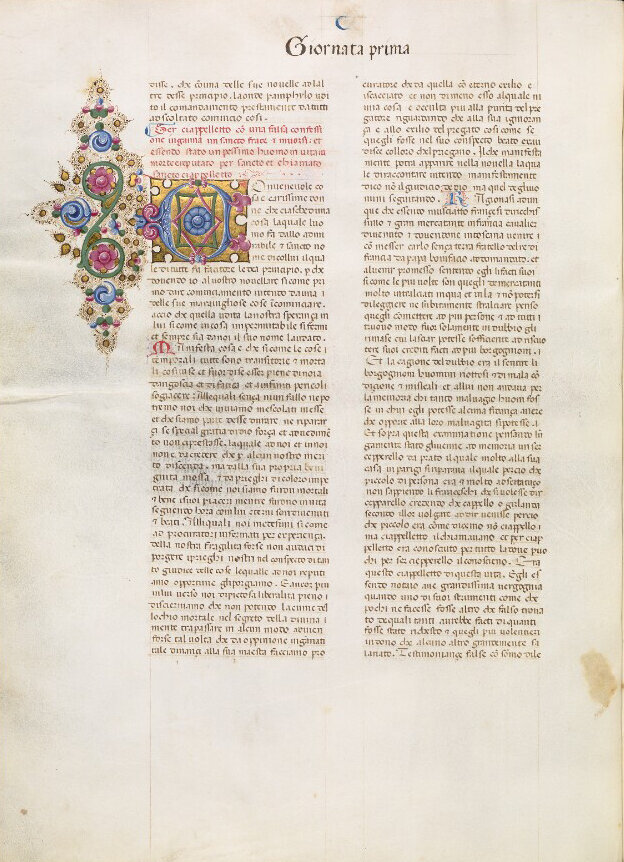 C
Giornata prima
disse. che co una delle sue novelle ad al
tre desse principio. laonde pamphylo udi
to il comandamento prestamente da tutti
ascoltato comincio cosi.
Ser ciappelletto co una falsa confessi
one inganna un sancto frate & muorsi. et
essendo stato un pessimo huomo in vita in
morte e reputato per sancto et chiamato
sancto ciappelletto
Onvenevole co
sa e carissime don
ne che ciascheduna
cosa laquale luo
mo fa dallo admi
rabile & sancto no
me di collui ilqua
le di tutti fu factore le dea principio. p che
dovendo io al vostro novellare si come pri
mo dare cominciamento intendo da una i
delle sue maravigliose cose icominciare.
accio che quella udita la nostra speranza in
lui si come in cosa impermutabile si fermi
et sempre sia da noi il suo nome laudato.
Manifesta cosa e che si come le cose i
temporali tutte sono transitorie & morta
li cosi in se et fuor di se esser piene di noia
dangoscia et di fatica et a infiniti pericoli
sogiacere. Allequali senza niun fallo ne po
tremo noi che viviamo mescolati in esse
et che siamo parte desse durare ne riparar
ci se spezial gratia di dio forza et advedime
to non ci prestasse. laquale ad noi et in noi
non e da credere che p alcun nostro meri
to discenda. ma dalla sua propria beni
gnita mossa. & da prieghi di coloro impe
trata che si come noi siamo furon mortali
& bene i suoi piaceri mentre furono in vita
seguendo hora con lui eterni son divenuti
& beati. Alliquali noi medesimi si come
ad procuratori informati per experienza
della nostra fragilita forse non audaci di
porgere i prieghi nostri nel conspetto di tan
to giudice delle cose lequali ad noi reputi
amo opportune gli porgiamo. E ancor piu
in lui verso noi di pietosa liberalita pieno i
discerniamo che non potendo lacume del
lochio mortale nel segreto della divina i
mente trapassare in alcun modo advien
forse tal volta che da oppinione ingannati
tale dinanzi alla sua maesta facciamo pro
curatore che da quella co eterno exilio e
iscacciato et non di meno esso al quale ni
una cosa e occulta piu alla purita del pre
gatore riguardando che alla sua ignoran
za o allo exilio del pregato cosi come se
quegli fosse nel suo conspecto beato exau
disce coloro che l pregano. Il che manifesta
mente potra apparire nella novella laqua
le di raccontare intendo manifestamente
dico no il giudicio de dio ma quel degliuo
mini seguitando. Ragionasi adun
que che essendo musciatto franzesi di richissi
mo & gran mercatante in francia cavalier
divenuto & dovendone in toscana venire i
co messer carlo senza terra fratello del re di
francia da papa bonifacio addomandato. et
al venir promesso sentendo egli i fatti suoi
si come le piu volte son quegli de mercatanti
molto intralciati in qua et in la & no potersi
di leggiere ne subitamente stralciare penso
quegli commettere ad piu persone & ad tutti i
truovo modo fuor solamente in dubbio gli
rimase cui lasciar potesse sofficiente ad riscuo
tere suoi crediti facti ad piu borgognoni. i
Et la cagione del dubbio era il sentire li
borgognoni huomini riottosi & di mala co
ditione & misleali et allui non andava per
la memoria chi tanto malvagio huom fos
se in chui egli potesse alcuna fidanza avere
che opporre alla loro malvagita si potesse. i
Et sopra questa examinatione pensando lu
gamente stato gli venne ad memoria un ser
ceperello da prato il quale molto alla sua
casa in parigi si riparava il quale percio che
piccolo di persona era & molto adsettatuzo
non sappiendo li franceschi che si volesse dir
cepparello credendo che cappello o grilanda
secondo il lor volgare ad dir venisse percio
che piccolo era come dicemo no ciappello i
ma ciappelletto il chiamavano et per ciap
pelletto era conosciuto per tutto la dove po
chi per ser ciepperello il conoscieno. Era
questo ciappelletto di questa vita. Egli es
sendo notaio avea grandissima vergogna
quando uno di suoi strumenti come che
pochi ne facesse fosse altro che falso trova
to de quali tanti avrebbe facti di quanti
fosse stato richesto & quegli piu volentieri
in dono che alcuno altro grantemente sa
lariato. Testimonianze false co sommo dile